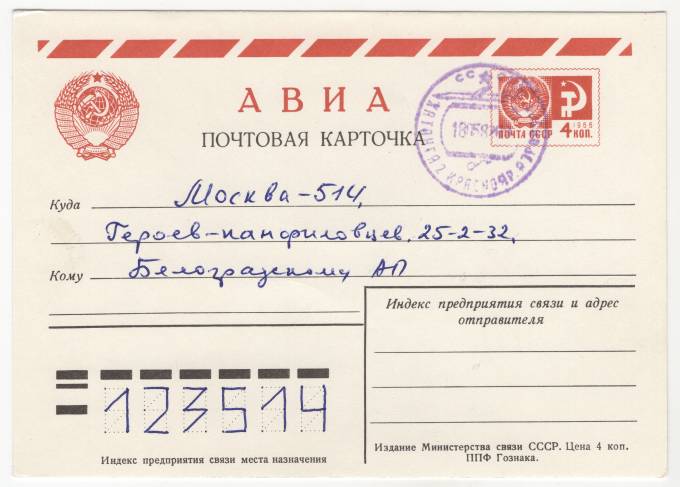 АВИА
ПОЧТОВАЯ КАРТОЧКА
ПОЧТА СССР
1966
4 КОП.
Куда Москва-514,
Героев-панфиловцев, 25-2-32,
Кому Белоградскому АП
Индекс предприятия связи и адрес
отправителя
123514
Индекс предприятия связи места назначения
Издание Министерства связи СССР. Цена 4 коп.
ППФ Гознака.